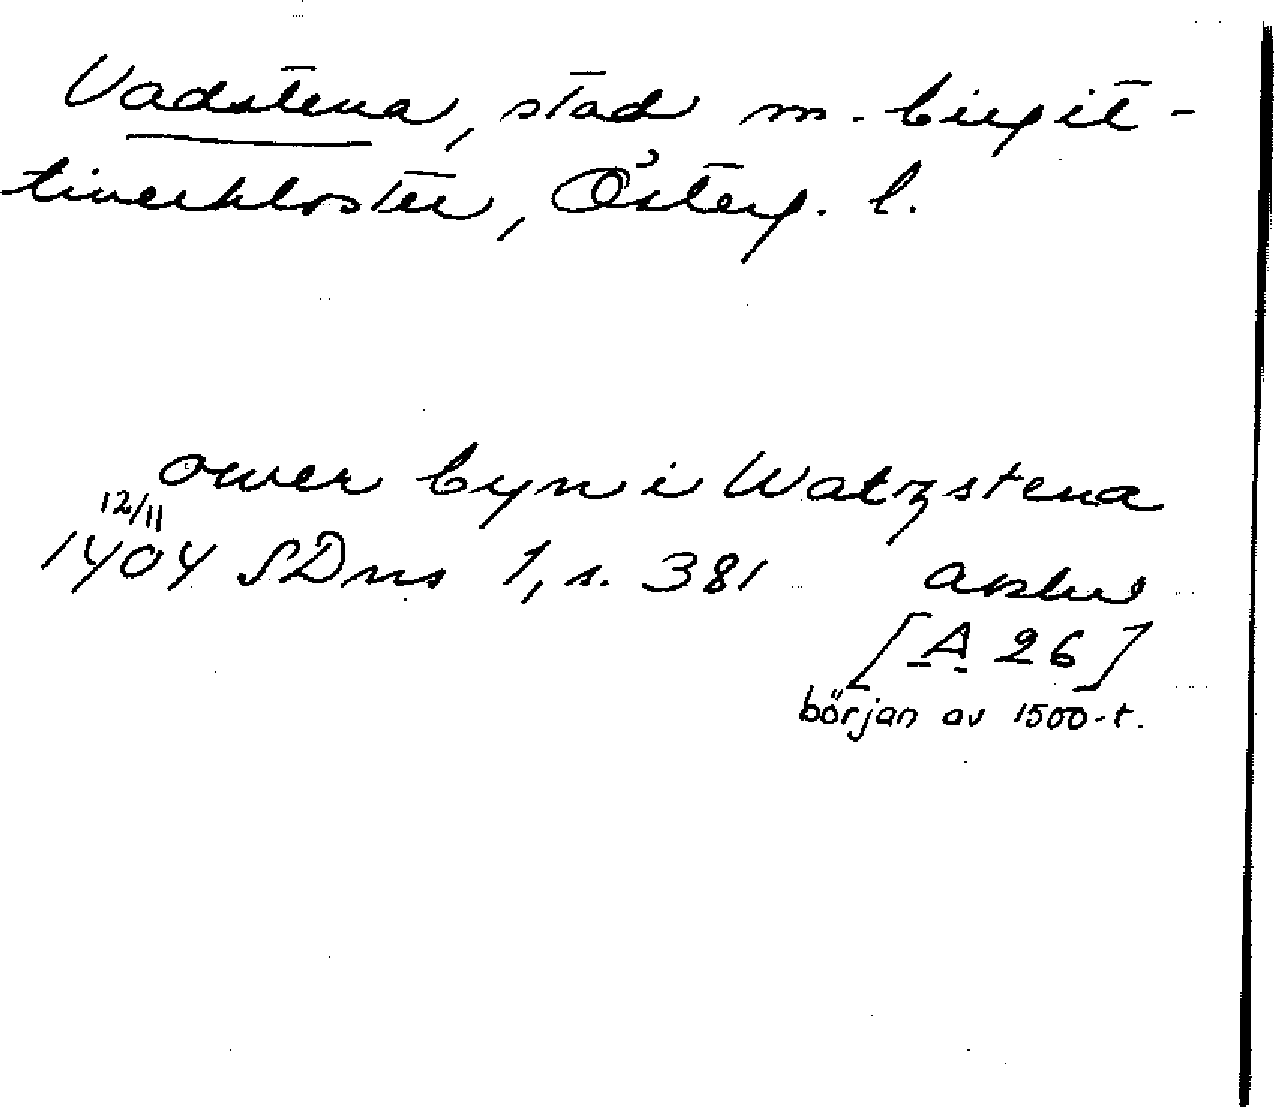 Vadstena, stad m. birgit-
tinerkloster, Österg. l.
ower byn i Watzstena
12/11
1404 SDns 1, s. 381 avskr
[A 26]
början av 1500-t.